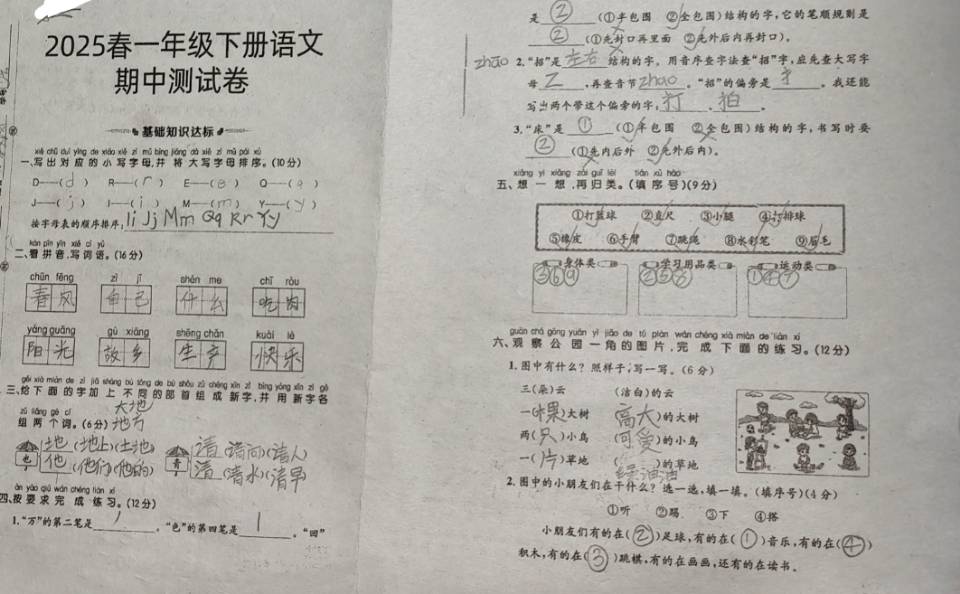 2025春一年级下册语文
期中测试卷
基础知识达标
xiě chū duì yìng de xiǎo xiě zì mǔ bìng jiāng dà xiě zì mǔ pái xù
一、写出对应的小写字母,并将大写字母排序。(10分)
D——(d) R——(r) E——(e) Q——(q)
J——(j) I——(i) M——(m) Y——(y)
按字母表的顺序排序: Ii Jj Mm Qq Rr Yy
kàn pīn yīn xiě cí yǔ
二、看拼音,写词语。(16分)
chūn fēng zì jǐ shén me chī ròu
春风 自己 什么 吃肉
yáng guāng gù xiāng shēng chǎn kuài lè
阳光 故乡 生产 快乐
gěi xià miàn de zì jiā shàng bù tóng de bù shǒu zǔ chéng xīn zì bìng yòng xīn zì gè
三、给下面的字加上不同的部首组成新字,并用新字各
zǔ liǎng gè cí
大地
组两个词。(6分) 地方
也 地 (地上)(土地) 青 请 (请问)(请人)
他 (他们)(他的) 清 (清水)(清早)
àn yāo qiú wán chéng liàn xí
四、按要求完成练习。(12分)
1.“万”的第二笔是 。“色”的第四笔是 丨 。“回”
是 ② (①半包围 ②全包围)结构的字,它的笔顺规则是
② (①先封口再里面 ②先外后内再封口)。
zhāo 2.“招”是 左右 结构的字。用音序查字法查“招”字,应先查大写字
母 Z ,再查音节 zhao 。“招”的偏旁是 扌 。我还能
写出两个带这个偏旁的字, 打 、 拍 。
3.“床”是 ① (①半包围 ②全包围)结构的字,书写时要
② (①先内后外 ②先外后内)。
xiǎng yì xiǎng zài guī lèi tián xù hào
五、想一想,再归类。(填序号)(9分)
①打篮球 ②直尺 ③小腿 ④打排球
⑤橡皮 ⑥手臂 ⑦跳绳 ⑧水彩笔 ⑨眉毛
身体类 学习用品类 运动类
③⑥⑨ ②⑤⑧ ①④⑦
guān chá gōng yuán yì jiǎo de tú piàn wán chéng xià miàn de liàn xí
六、观察公园一角的图片,完成下面的练习。(12分)
1.图中有什么?照样子,写一写。(6分)
三(朵)云 (洁白)的云
一(棵)大树 (高大)的大树
两(只)小鸟 (可爱)的小鸟
一(片)草地 (绿油油)的草地
2.图中的小朋友们在干什么?选一选,填一填。(填序号)(4分)
①听 ②踢 ③下 ④搭
小朋友们有的在(②)足球,有的在(①)音乐,有的在(④)
积木,有的在(③)跳棋,有的在画画,还有的在读书。